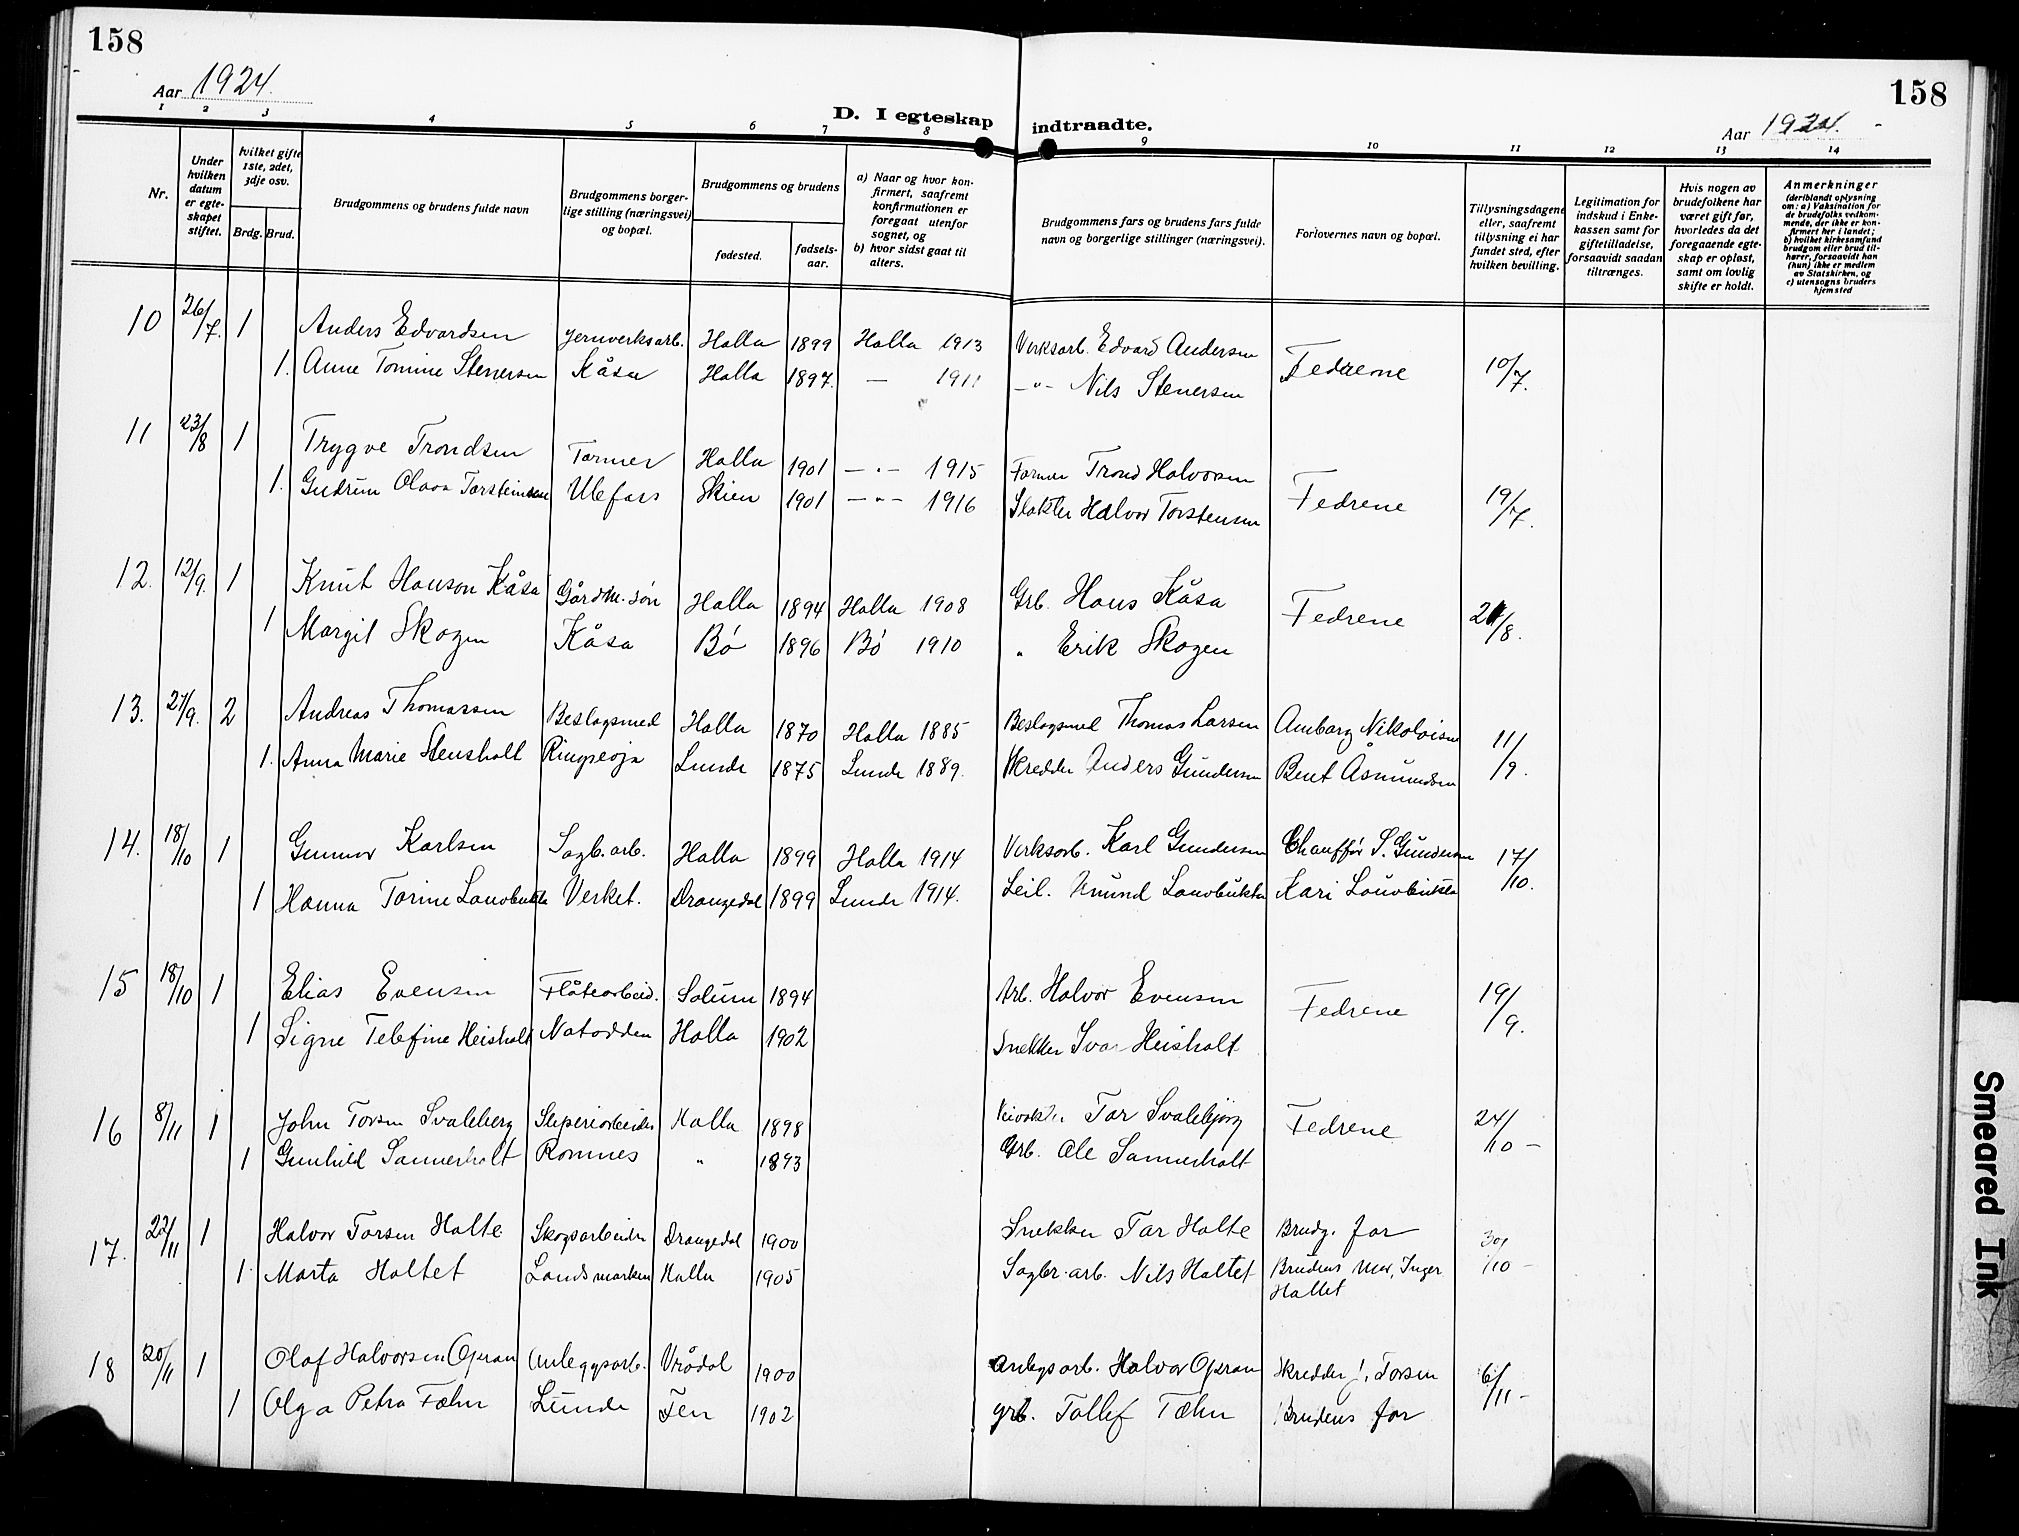 158
158
Aar 1924.
Aar 1924.
D. I egteskap indtraadte.
1 2 3 4 5 6 7 8 9 10 11 12 13 14
Nr.
Under hvilken datum er egteskapet stiftet.
hvilket gifte 1ste, 2det, 3dje osv.
Brdg. Brud.
Brudgommens og brudens fulde navn
Brudgommens borgerlige stilling (næringsvei) og bopæl.
Brudgommens og brudens
fødested.
fødselsaar.
a) Naar og hvor konfirmert, saafremt konfirmutionen er foregaat utenfor sognet, og
b) hvor sidst gaat til alters.
Brudgommens fars og brudens fars fulde navn og borgerlige stillinger (næringsvei).
Forlovernes navn og bopæl.
Tillysningsdagene eller, saafremt tillysning ei har fundet sted, efter hvilken bevilling.
Legitimation for indskud i Enkekassen samt for giftetilladelse, forsaavidt saadan tiltrænges.
Hvis nogen av brudefolkene har været gift før, hvorledes da det foregaaende egteskap er opløst, samt om lovlig skifte er holdt.
Anmerkninger
(deriblandt oplysning om: a) Vaksination for de brudefolks vedkommende, der ikke er konfirmert her i landet; b) hvilket kirkesamfund brudgom eller brud tilhører, forsaavidt han (hun) ikke er medlem av Statskirken, og c) utensogns bruders hjemsted
10 26/7. 1 Anders Edvardsen Jernverksarb. Holla 1899 Holla 1913 Verksarb. Edvard Andersen Fedrerne 10/7.
1. Anne Tomine Stenersen Kåsa Holla 1897. — 1911 —"— Nils Stenersen
11 23/8 1 Trygve Trondsen Former Holla 1901 —"— 1915 Former Trond Halvorsen Fedrene 19/7.
1. Gudrun Olava Torsteinsen Ulefoss Skien 1901 —"— 1916 Slakter Halvor Torstensen
12. 12/9. 1 Knut Hanson Kåsa Gårdm. søn Holla 1894 Holla 1908 Grb. Hans Kåsa Fedrene 21/8.
1 Margit Skogen Kåsa Bø 1896 Bø 1910 " Erik Skogen
13. 27/9. 2 Andreas Thomassen Beslagsmed Holla 1870 Holla 1885 Beslagsmed Thomas Larsen Amborg Nikolaisen 11/9.
1. Anna Marie Stensholt Ringsevja Lunde 1875 Lunde 1889. Skredder Anders Gundersen Bent Åsmundsen
14. 18/10 1 Gunnar Karlsen Sagb. arb. Holla 1899 Holla 1914 Verksarb. Karl Gundersen Chauffør S. Gundersen 17/10.
1 Hanna Torine Lauvbukta Verket. Drangedal 1899 Lunde 1914. Leil. Amund Lauvbukta Kari Lauvbukta
15 18/10 1 Elias Evensen Fløtearbeid. Solum 1894 Arb. Halvor Evensen Fedrene 19/9.
1 Signe Telefine Heisholt Notodden Holla 1902 Snekker Ivar Heisholt
16 8/11 1 John Torsen Svalebjerg Sliperiarbeider Holla 1898 Tor Svalebjørg Fedrene 24/10 —
1 Gunhild Sannerholt Romnes " 1893 Grb. Ole Sannerholt
17. 22/11 1 Halvor Torsen Holte Skogsarbeider Drangedal 1900 Snekker Tor Holte Brudg. far 30/10 —
1 Marta Holtet Landsmarken Holla 1905 Sagbr. arb. Nils Holtet Brudens mor, Inger
Holtet
18 20/11 1 Olaf Halvorsen Opran Anleggsarb. Vrådal 1900 Anlegsarb. Halvor Opran Skredder J. Torsen 6/11 —
1 Olga Petra Fæhn Lunde Fen 1902 grb. Tollef Fæhn Brudens far
Smeared Ink